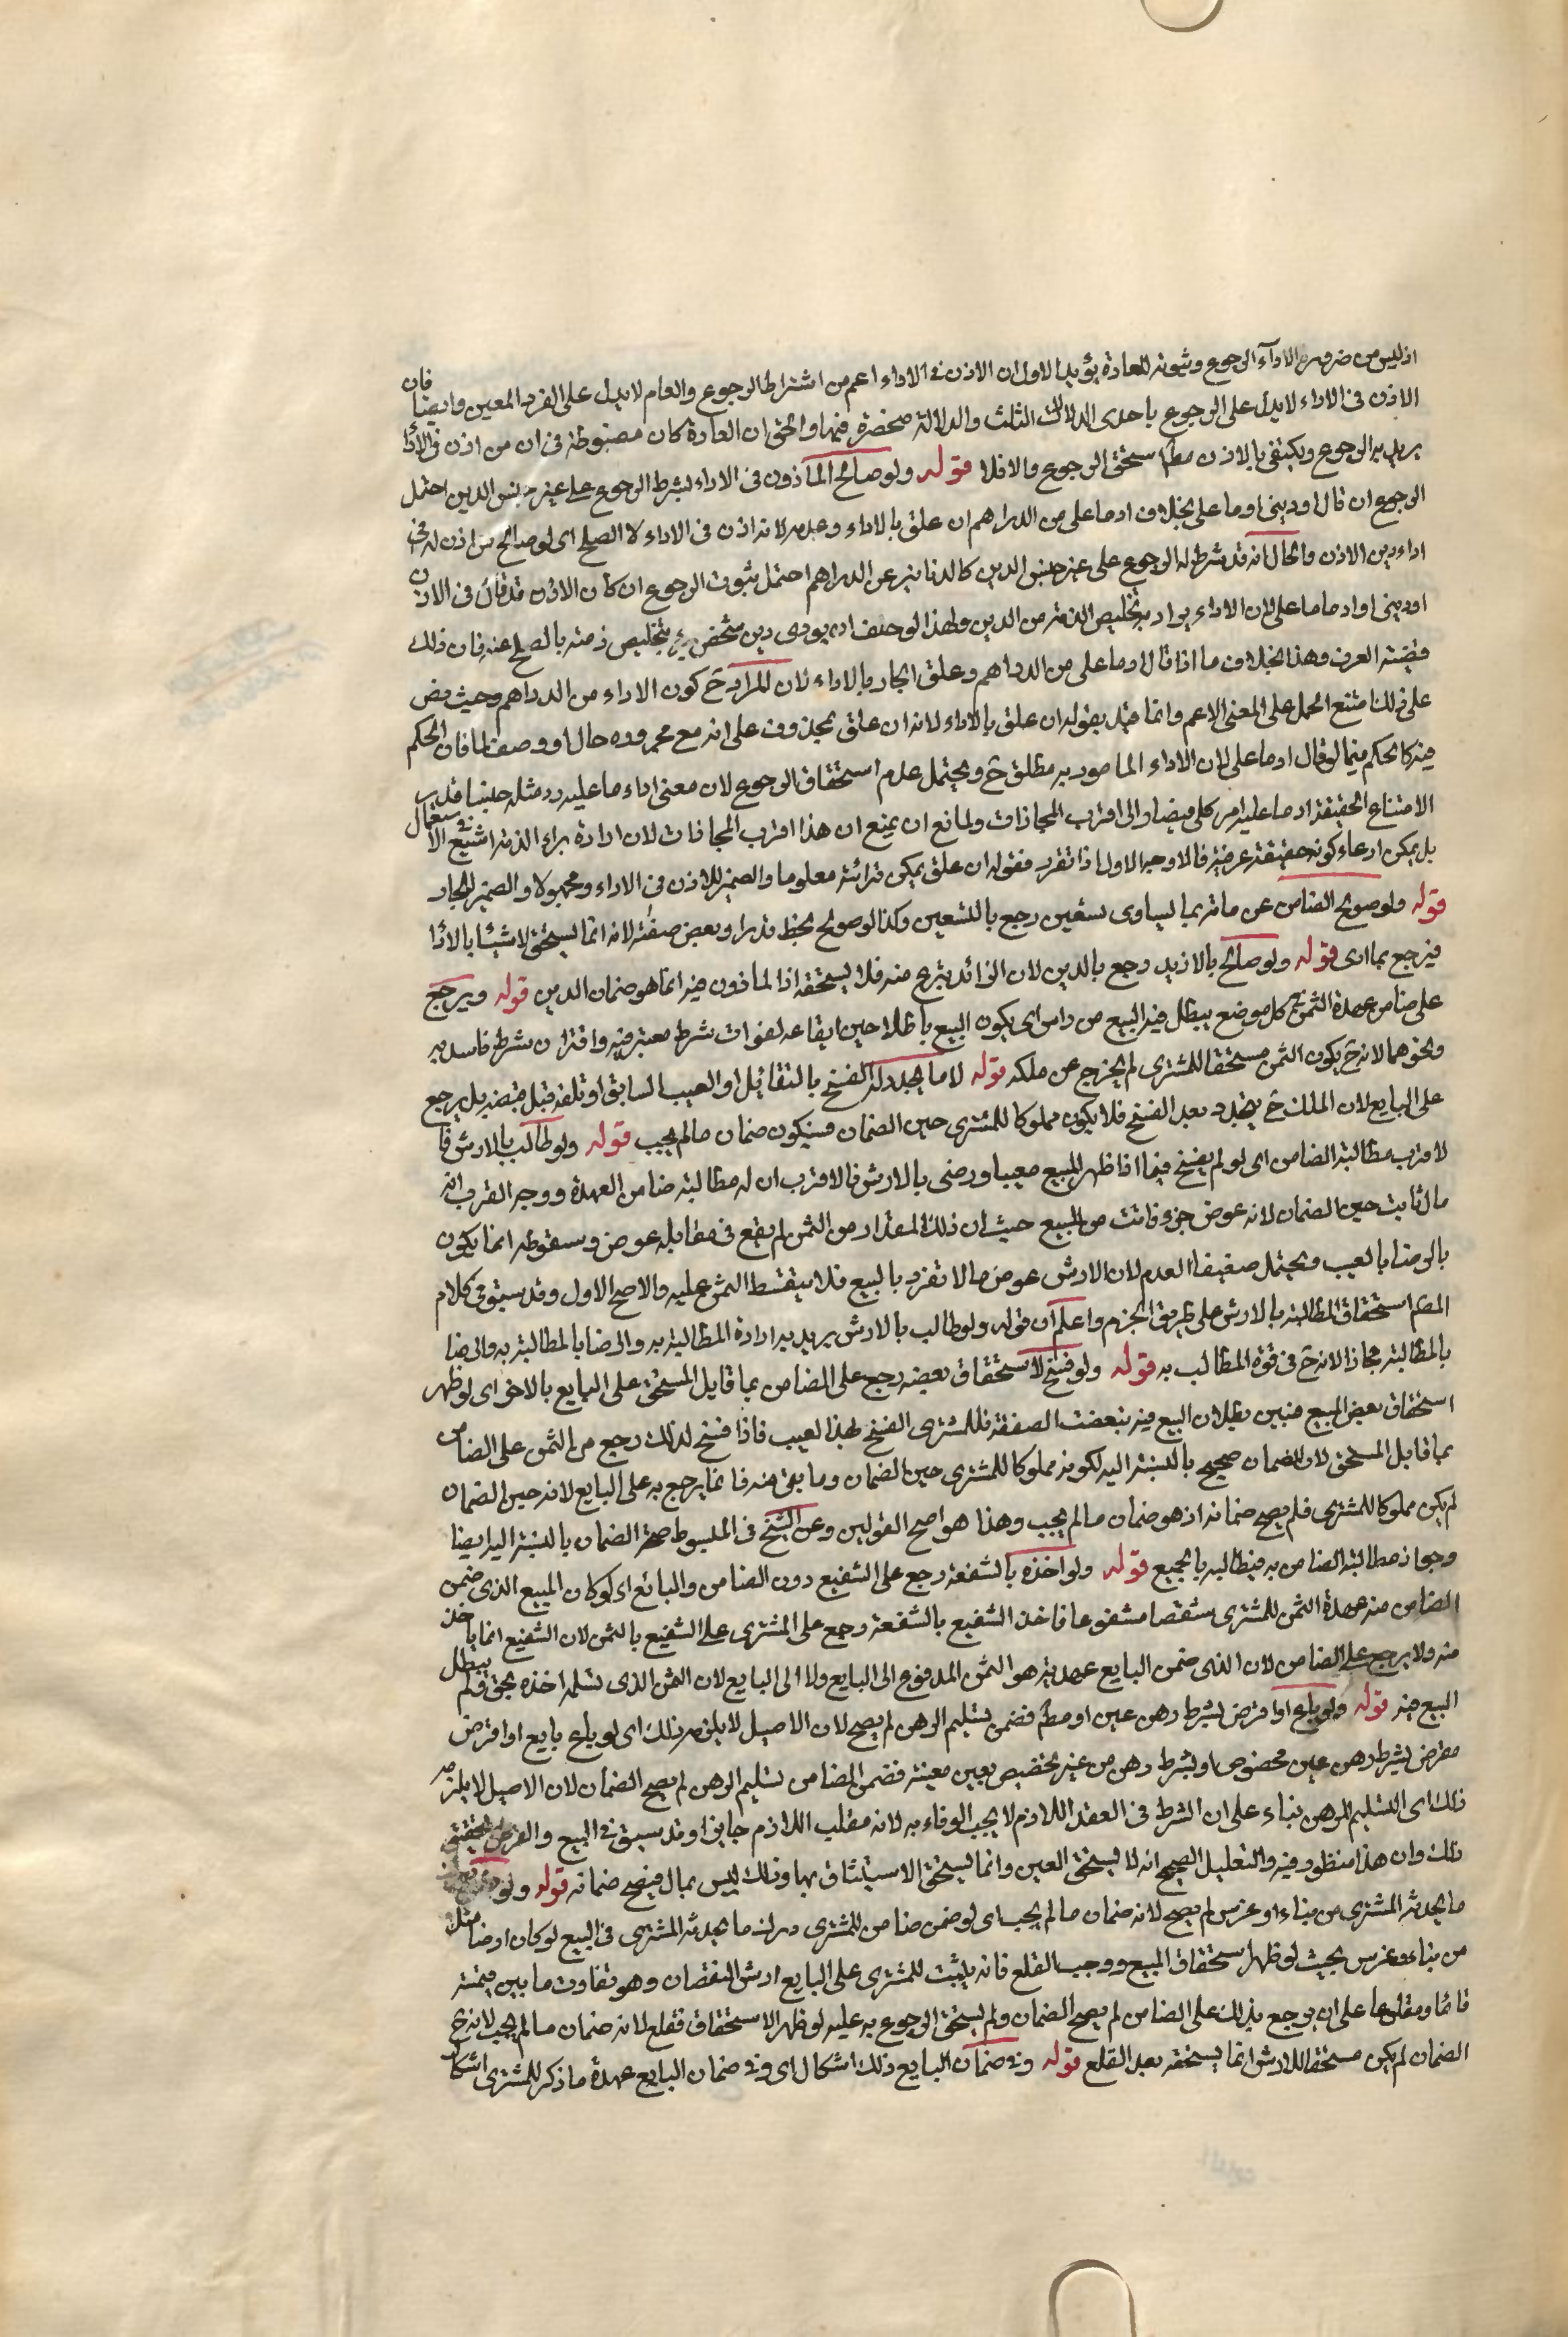 اذ ليس من ضرورة الاداء الرجوع وثبوته للعادة يؤيد الاول ان الاذن في الاداء اعم من اشتراط الرجوع والعام لا يدل على الفرد المعين وايضا فان
الاذن في الاداء لا يدل على الرجوع باحدى الدلالات الثلث والدلالة منحصرة فيها والحق ان العادة كان مضبوطة في ان من اذن في الاداء
يريد به الرجوع ويكتفي بالاذن مطلقا استحق الرجوع والا فلا قوله ولو صالح المأذون في الاداء بشرط الرجوع على غير جنس الدين احتمل
الرجوع ان قال اد ديني او ما علي بخلاف اد ما علي من الدراهم ان علق بالاداء وعدمه لانه اذن في الاداء لا الصلح اي لو صالح من اذن له في
اداء دين الاذن والحال انه قد شرط له الرجوع على غير جنس الدين كالدنانير عن الدراهم احتمل ثبوت الرجوع ان كان الاذن قد قال في الاذن
اد ديني او اد ما علي لان الاداء يراد به تخليص الذمة من الدين ولهذا لو حلف ان يودي دين شخص برئ بتخليص ذمته بالصلح عنه فان ذلك
قضية العرف وهذا بخلاف ما اذا قال اد ما علي من الدراهم وعلق الجار بالاداء لان المراد ح كون الاداء من الدراهم وحيث نص
على ذلك امتنع الحمل على المعنى الاعم وانما قيد بقوله ان علق بالاداء لانه ان علق بمحذوف على انه مع مجروره حال او وصف لما فان الحكم
فيه كالحكم فيما لو قال اد ما علي لان الاداء المامور به مطلق ح ويحتمل عدم استحقاق الرجوع لان معنى اداء ما عليه رد مثله جنسا قدرا
لامتناع الحقيقة اد ما عليه امر كلي فيصار الى اقرب المجازات ولمانع ان يمنع ان هذا اقرب المجازات لان ارادة براءة الذمة اشيع في الاستعمال
بل يمكن ادعاء كونه حقيقة عرفية فالاوجه الاول اذا تقرر فقوله ان علق يمكن قرائته معلوما والضمير للاذن في الاداء ومجهولا والضمير للجار
قوله ولو صولح الضامن عن مائة بما يساوي تسعين رجع بالتسعين وكذا لو صولح بحط قدر او بعض صفته لانه انما يستحق لا شيئا بالاداء
فيرجع بما ادى قوله ولو صالح بالازيد رجع بالدين لان الزائد تبرع منه فلا يستحقه اذ الماذون فيه انما هو ضمان الدين قوله ويرجع
على ضامن عهدة الثمن في كل موضع يبطل فيه البيع من راس اي يكون البيع باطلا حين ايقاعه لفوات شرط معتبر فيه واقتران شرط فاسد به
ونحوهما لانه ح يكون الثمن مستحقا للمشتري لم يخرج عن ملكه قوله لا ما يجدد له الفسخ بالتقايل او العيب السابق او تلفه قبل قبضه بل يرجع
على البايع لان الملك ح يتجدد بعد الفسخ فلا يكون مملوكا للمشتري حين الضمان فيكون ضمان ما لم يجب قوله ولو طالب بالارش فا
لاقرب مطالبة الضامن اي لو لم يفسخ فيما اذا ظهر المبيع معيبا ورضي بالارش فالاقرب ان له مطالبة ضامن العهدة ووجه القرب انه
مال ثابت حين الضمان لانه عوض جزء فائت من المبيع حيث ان ذلك المقدار من الثمن لم يقع في مقابله عوض وسقوطه انما يكون
بالرضا بالعيب ويحتمل ضعيفا العدم لان الارش عوض ما لا تفرد بالبيع فلا يتقسط الثمن عليه والاصح الاول وقد سبق في كلام
المص استحقاق المطالبة بالارش على طريق الجزم واعلم ان قوله ولو طالب بالارش يريد به ارادة المطالبة به والرضا بالمطالبة به والرضا
بالمطالبة مجازا لانه ح في قوة المطالب به قوله ولو فسخ لاستحقاق بعضه رجع على الضامن بما قابل المستحق على البايع بالاخر اي لو ظهر
استحقاق بعض المبيع فتبين بطلان البيع فيه بتبعضت الصفقة فللمشتري الفسخ لهذا العيب فاذا فسخ لذلك رجع من الثمن على الضامن
بما قابل المستحق لان الضمان صحيح بالنسبة اليه لكونه مملوكا للمشتري حين الضمان وما بقي منه فانما يرجع به على البايع لانه حين الضمان
لم يكن مملوكا للمشتري فلم يصح ضمانه اذ هو ضمان ما لم يجب وهذا هو اصح القولين وعن الشيخ في المبسوط صحة الضمان بالنسبة اليه ايضا
وجواز مطالبة الضامن به فيطالبه بالجميع قوله ولو اخذه بالشفعة رجع على الشفيع دون الضامن والبائع اي لو كان المبيع الذي ضمن
الضامن منه عهدة الثمن للمشتري شقصا مشفوعا فاخذ الشفيع بالشفعة رجع على المشتري على الشفيع بالثمن لان الشفيع انما ياخذ
منه ولا يرجع على الضامن لان الذي ضمن البايع عهدته هو الثمن المدفوع الى البايع ولا الى البايع لان الثمن الذي تسلمه اخذه بحق فلم يبطل
البيع فيه قوله ولو باع او اقرض بشرط رهن عين او مطلقا فضمن تسليم الرهن لم يصح لان الاصيل لا يلزمه ذلك اي لو باع بايع او اقرض
مقرض بشرط رهن عين مخصوص او بشرط رهن من غير تخصيص بعين معينة فضمن الضامن تسليم الرهن لم يصح الضمان لان الاصيل لا يلزمه
ذلك اي التسليم للرهن بناء على ان الشرط في العقد اللازم لا يجب الوفاء به لانه مقلب اللازم جايزا وقد سبق في البيع والقرض تحقيق
ذلك وان هذا منظور فيه والتعليل الصحيح انه لا يستحق العين وانما يستحق الاستيثاق بها وذلك ليس بمال فيصح ضمانه قوله ولو
ما يحدثه المشتري من بناء او غرس لم يصح لانه ضمان ما لم يجب اي لو ضمن ضامن للمشتري درك ما يحدثه المشتري في المبيع لو كان ارضا مثلا
من بناء وغرس بحيث لو ظهر استحقاق المبيع ووجب القلع فانه يثبت للمشتري على البايع ارش النقصان وهو تفاوت ما بين قيمته
قائما ومقلوعا على ان يرجع بذلك على الضامن لم يصح الضمان ولم يستحق الرجوع به عليه لو ظهر الاستحقاق فقلع لانه ضمان ما لم يجب لانه ح
الضمان لم يكن مستحقا للارش انما يستحقه بعد القلع قوله وفي ضمان البايع ذلك اشكال اي وفي ضمان البايع عهدة ما ذكر للمشتري اشكال